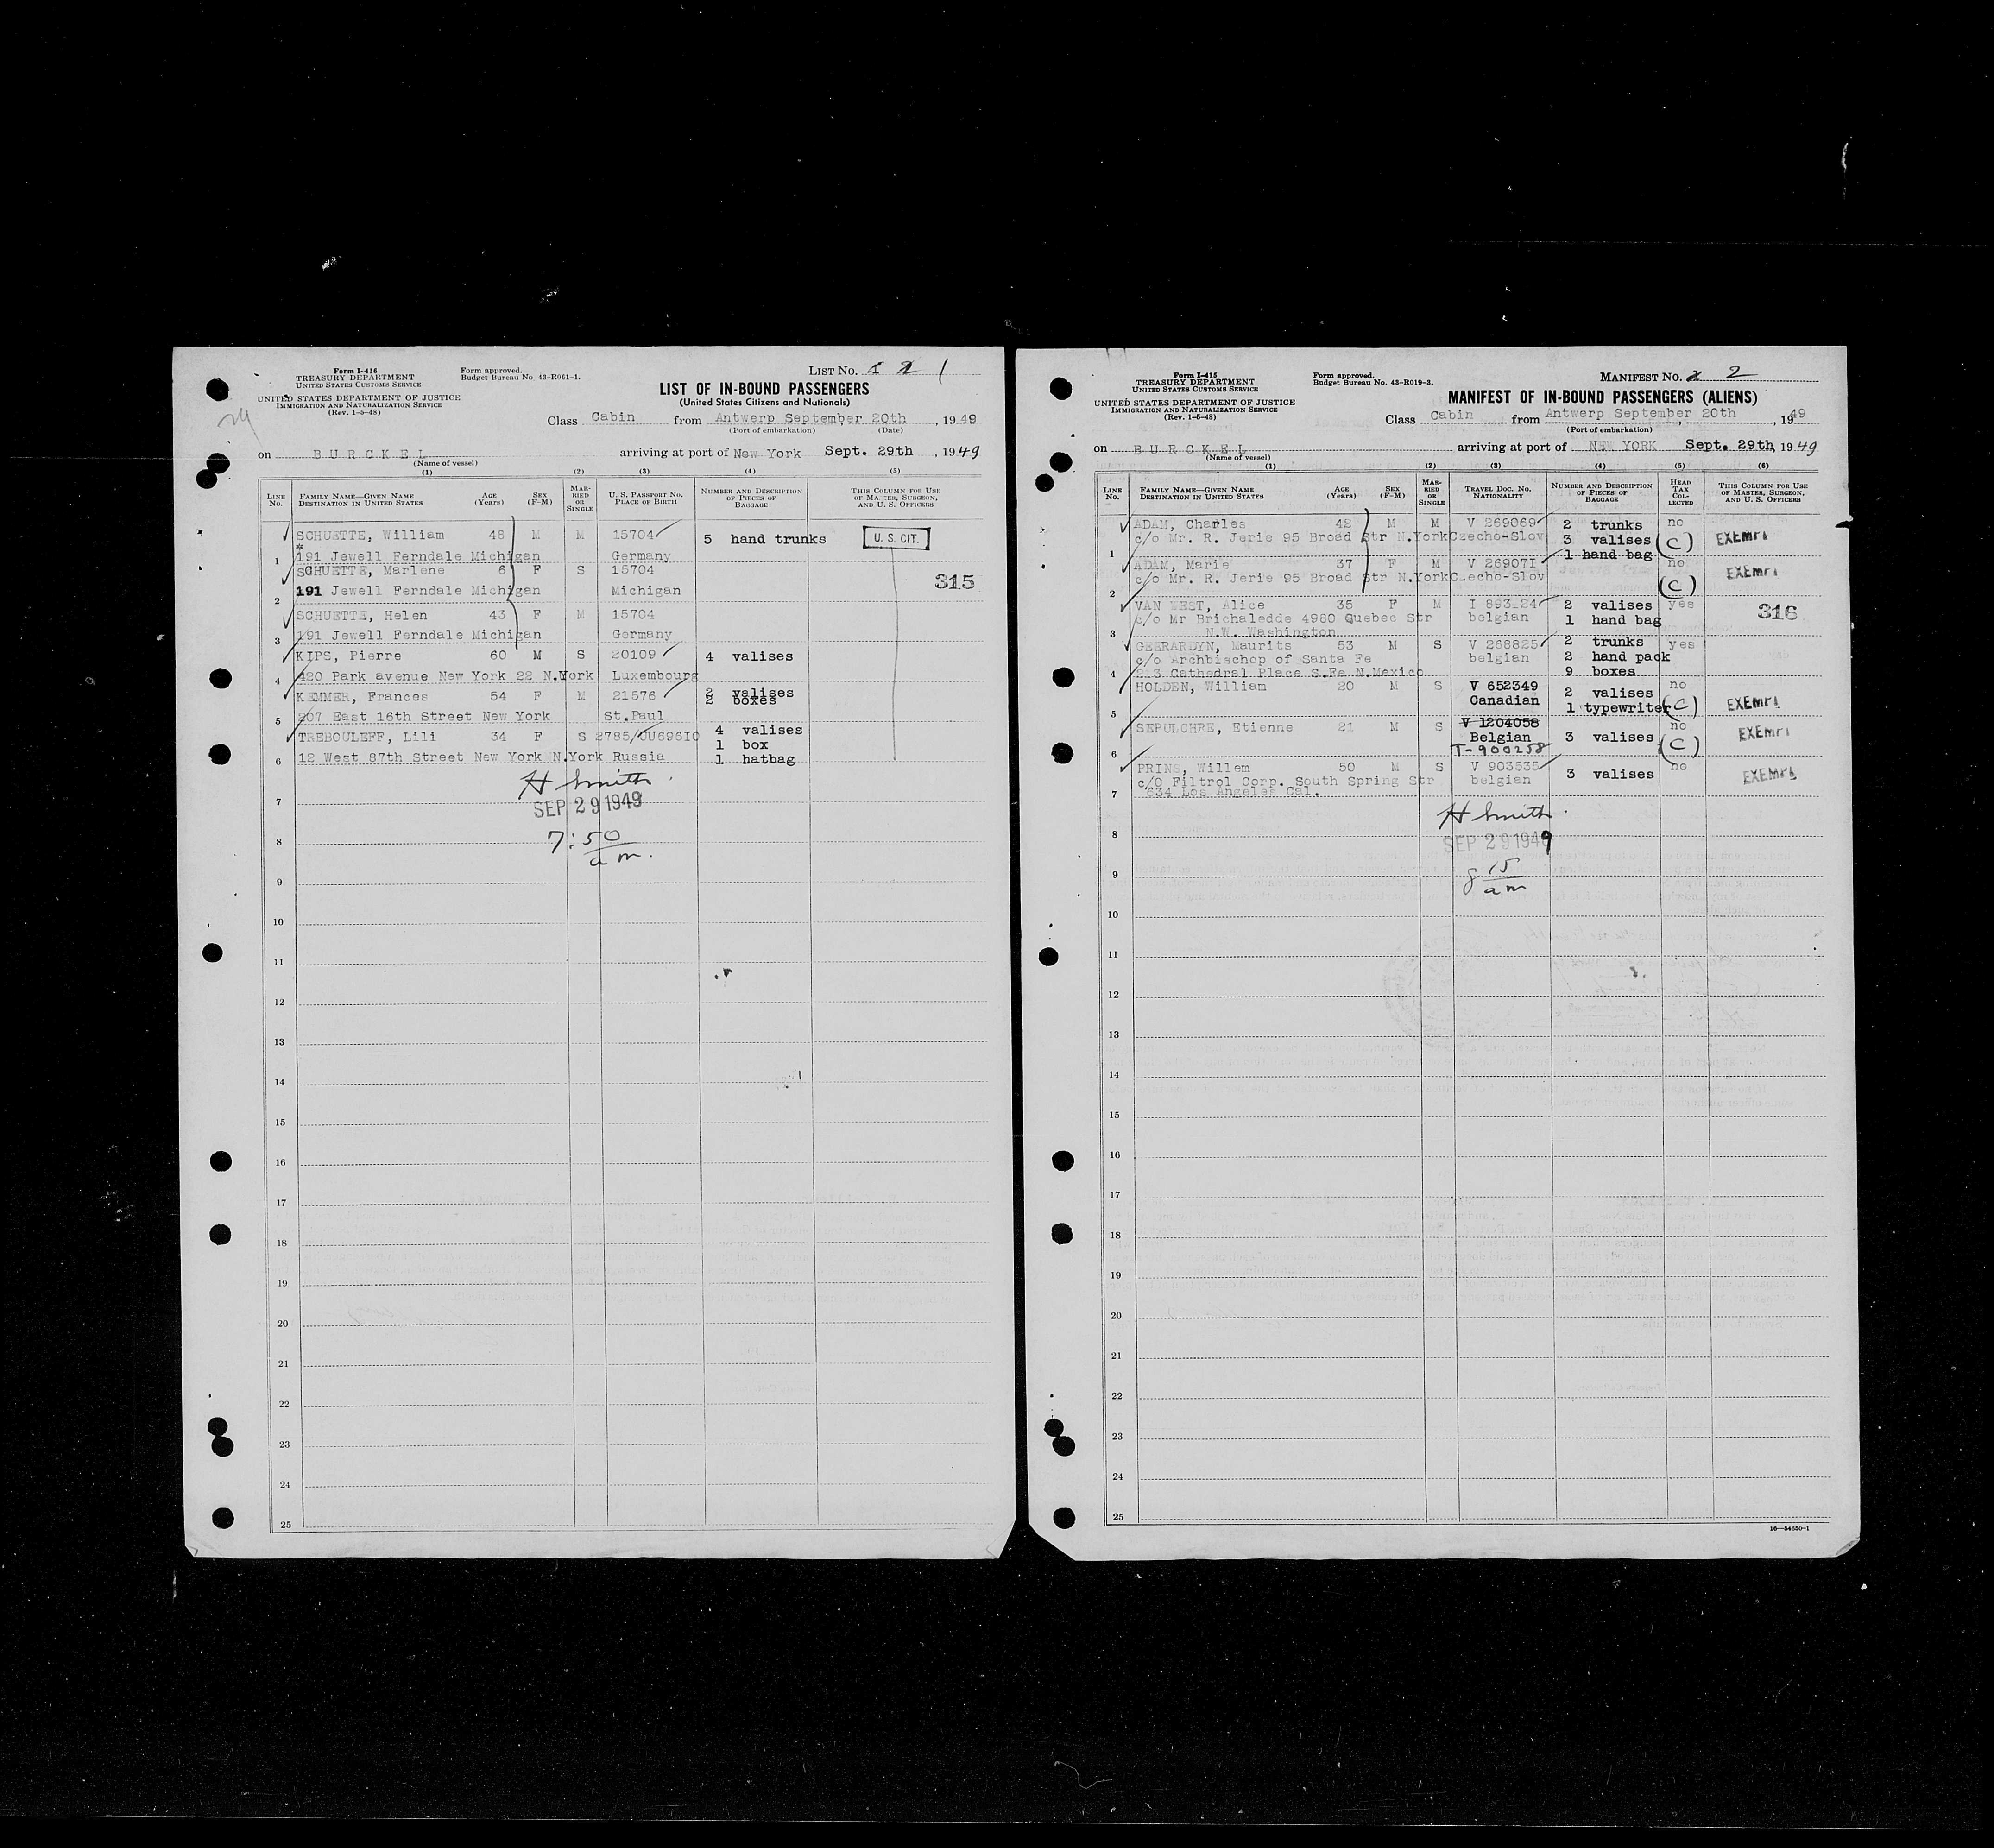 Form I-416
TREASURY DEPARTMENT
UNITED STATES CUSTOMS SERVICE
UNITED STATES DEPARTMENT OF JUSTICE
IMMIGRATION AND NATURALIZATION SERVICE
(Rev. 1-5-48)
Form approved.
Budget Bureau No. 43-R061-1.
LIST NO. 1
LIST OF IN-BOUND PASSENGERS
(United States Citizens and Nationals)
Class Cabin from Antwerp September 20th, 1949
(Port of embarkation) (Date)
on BURCKEL arriving at port of New York Sept. 29th, 1949
(Name of vessel)
(1) (2) (3) (4) (5)
LINE NO. FAMILY NAME—GIVEN NAME DESTINATION IN UNITED STATES AGE (Years) SEX (F-M) MARRIED OR SINGLE U. S. PASSPORT NO. PLACE OF BIRTH NUMBER AND DESCRIPTION OF PIECES OF BAGGAGE THIS COLUMN FOR USE OF MASTER, SURGEON, AND U. S. OFFICERS
SCHUETTE, William 48 M M 15704 5 hand trunks U. S. CIT.
1 191 Jewell Ferndale Michigan Germany
SCHUETTE, Marlene 6 F S 15704 315
2 191 Jewell Ferndale Michigan Michigan
SCHUETTE, Helen 43 F M 15704
3 191 Jewell Ferndale Michigan Germany
KIPS, Pierre 60 M S 20109 4 valises
4 420 Park avenue New York 22 N.York Luxembourg
KEMMER, Frances 54 F M 21576 2 valises
2 boxes
5 207 East 16th Street New York St.Paul
TREBOULEFF, Lili 34 F S 2785/JU696I0 4 valises
1 box
6 12 West 87th Street New York N.York Russia 1 hatbag
H Smith
7 SEP 29 1949
8 7:50 am.
9
10
11
12
13
14
15
16
17
18
19
20
21
22
23
24
25
Form I-415
TREASURY DEPARTMENT
UNITED STATES CUSTOMS SERVICE
UNITED STATES DEPARTMENT OF JUSTICE
IMMIGRATION AND NATURALIZATION SERVICE
(Rev. 1-5-48)
Form approved.
Budget Bureau No. 43-R019-3.
MANIFEST NO. 2
MANIFEST OF IN-BOUND PASSENGERS (ALIENS)
Class Cabin from Antwerp September 20th, 1949
(Port of embarkation)
on BURCKEL arriving at port of NEW YORK Sept. 29th, 1949
(Name of vessel)
(1) (2) (3) (4) (5) (6)
LINE NO. FAMILY NAME—GIVEN NAME DESTINATION IN UNITED STATES AGE (Years) SEX (F-M) MARRIED OR SINGLE TRAVEL DOC. NO. NATIONALITY NUMBER AND DESCRIPTION OF PIECES OF BAGGAGE HEAD TAX COLLECTED THIS COLUMN FOR USE OF MASTER, SURGEON, AND U. S. OFFICERS
ADAM, Charles 42 M M V 269069 2 trunks no
c/o Mr. R. Jerie 95 Broad Str N.York Czecho-Slov 3 valises (C) EXEMPT
1 1 hand bag
ADAM, Marie 37 F M V 26907I no
c/o Mr. R. Jerie 95 Broad Str N.York Czecho-Slov (C) EXEMPT
2
VAN WEST, Alice 35 F M 2 valises yes 316
c/o Mr Brichaledde 4980 Quebec Str belgian 1 hand bag
3 N.W. Washington
GEERARDYN, Maurits 53 M S V 268825 2 trunks yes
c/o Archbischop of Santa Fe belgian 2 hand pack
4 213 Cathedral Place S.Fe N.Mexico 9 boxes
HOLDEN, William 20 M S V 652349 2 valises no
5 Canadian 1 typewriter (C) EXEMPT
SEPULCHRE, Etienne 21 M S V 1204058 no
Belgian 3 valises (C) EXEMPT
6 T-900258
PRINS, Willem 50 M S V 903535 no
c/O Filtrol Corp. South Spring Str belgian 3 valises EXEMPT
7 634 Los Angeles Cal.
H Smith
8 SEP 29 1949
9 8 15 am
10
11
12
13
14
15
16
17
18
19
20
21
22
23
24
25
16—54650-1